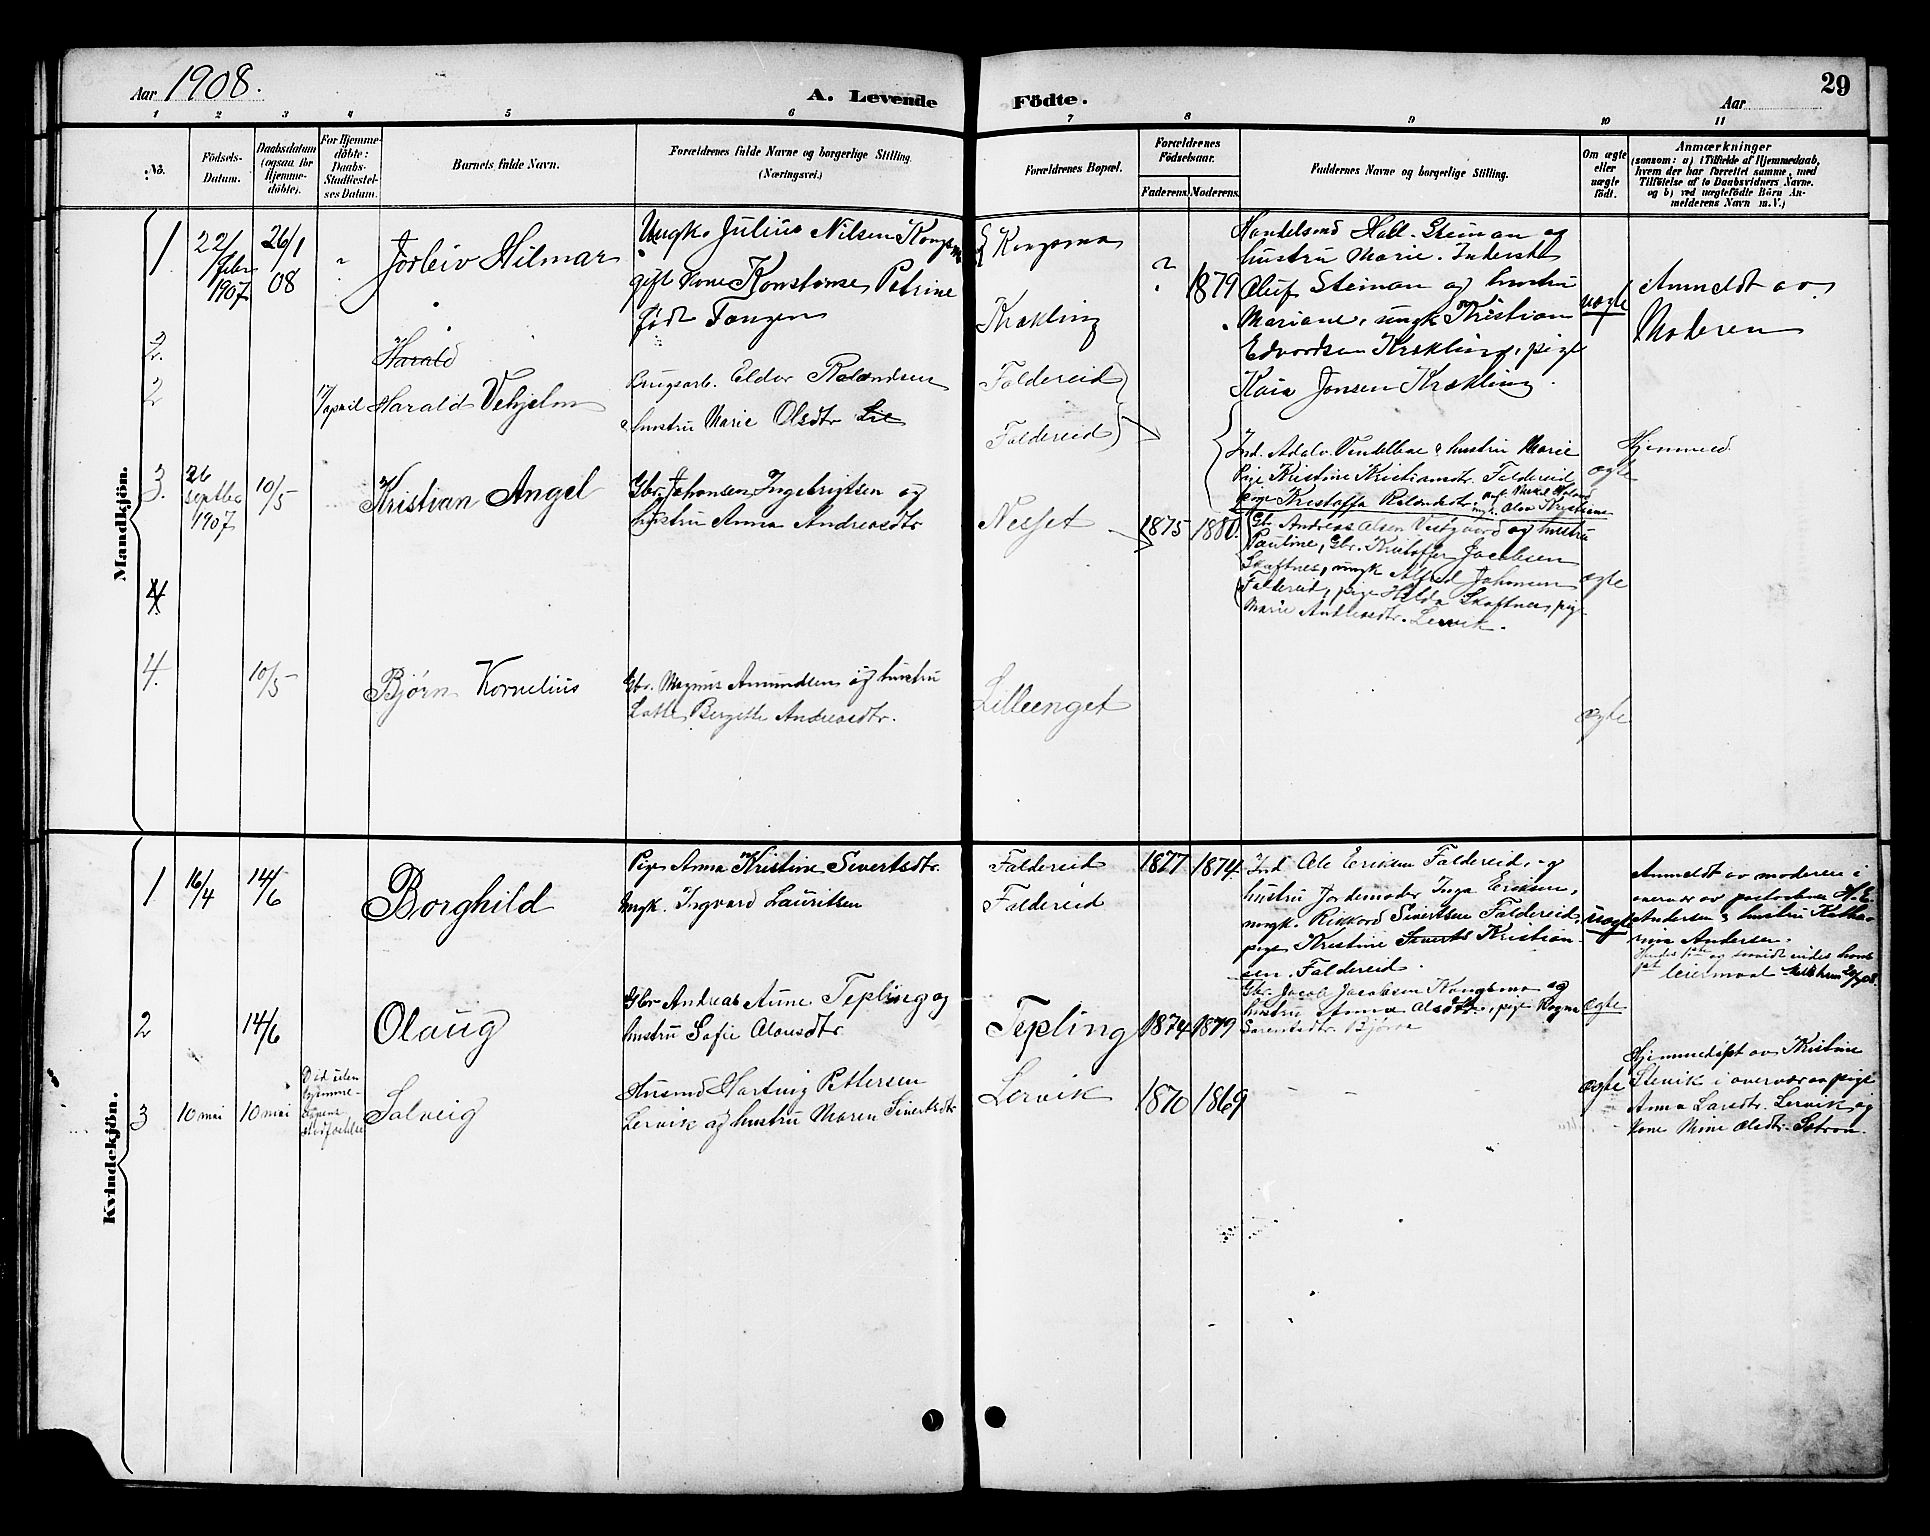 Aar 1908.
A. Levende
Födte.
Aar
29
1 2 3 4 5 6 7 8 9 10 11
No.
Födsels-
Datum.
Daabsdatum
(ogsaa for
Hjemme-
döbte).
For Hjemme-
döbte:
Daabs-
Stadfæstel-
ses Datum.
Barnets fulde Navn.
Forældrenes fulde Navne og borgerlige Stilling.
(Næringsvei.)
Forældrenes Bopæl.
Forældrenes
Födselsaar.
Faderens. Moderens.
Faddernes Navne og borgerlige Stilling.
Om ægte
eller
uægte
födt.
Anmærkninger
(saasom: a) i Tilfælde af Hjemmedaab,
hvem der har forrettet samme, med
Tilföielse af to Daabsvidners Navne.
og b) ved uægtefödte Börn An-
melderens Navn m. V.)
Mandkjön.
1
22/
febr
1907
26/1
08
Jorleiv Hilmar
Ungk. Julius Nilsen Kongsmo
gift kone Konstanse Petrine
født Tangen
Kongsmo
Krækling
?
1879
Handelsmd Hall. Steiman og
hustru Marie. Inderst
Oluf Steiman og hustru
Mariane, ungk Kristian
Edvardsen Krækling, pige
Kaia Jonsen Krækling.
uægte
Anmeldt av
Moderen
2.
Harald
2
1/april
Harald Vehjelm
Brugsarb. Eldor Rolandsen
hustru Marie Olsdtr
Foldereid
Foldereid
Ind. Adolv. Vendelboe & hustru Marie
Pige Kristine Kristiansdr. Foldereid
pige Kristoffa Rolandsdtr
ægte
Hjemmed.
3.
26
septbr
1907
10/5
Kristian Angel
Gbr. Johansen Ingebrigtsen og
hustru Anna Andreasdtr
Nesset
1875
1880.
Gb. Andreas Olsen Vestgaard og hustru
Pauline, Gbr. Kristoffer Jacobsen
Skaftnes, ungk Alfred Johansen
Foldereid, pige Hilda Skaftnes, pige
Marie Andreasdtr. Lervik.
ægte
4
4.
10/5
Bjørn Kornelius
Gbr. Magnus Amundsen og hustru
Lotte Bergitte Andreasdtr.
Lilleenget
ægte
Kvindekjön.
1
16/4
14/6
Borghild
Pige Anna Kristine Sivertsdtr.
Ungk. Ingvard Lauritsen
Foldereid
Foldereid
1877
1874.
Ind Ole Eriksen Foldereid, og
hustru Jordemoder Inga Eriksen,
ungk. Rikkard Sivertsen Foldereid,
pige Kristine Siverts Kristian-
sen. Foldereid.
uægte
Anmeldt av moderen i
overvær av pastorbror H. E.
Andersen & hustru Katha-
rina Andersen.
leiermaal
2
14/6
Olaug
Gbr Andreas Aune Tepling og
hustru Sofie Olausdtr
Tepling
1874
1879
Gbr. Jacob Jacobsen Kongsmo og
hustru Anna Olsdtr, pige Ragna
Sørensdtr. Bjøren
ægte
3
10 mai
10 mai
Død uden
hjemme-
daabens
stadfæstelse
Solveig
Husmd Hartvig Pettersen
Lervik og hustru Maren Sivertsdtr
Lervik
1870
1869
- -
ægte
Hjemmedøpt av Kristine
Stenvik i overvær av pige
Anna Larsdtr. Lervik og
kone Mine Olsdtr.